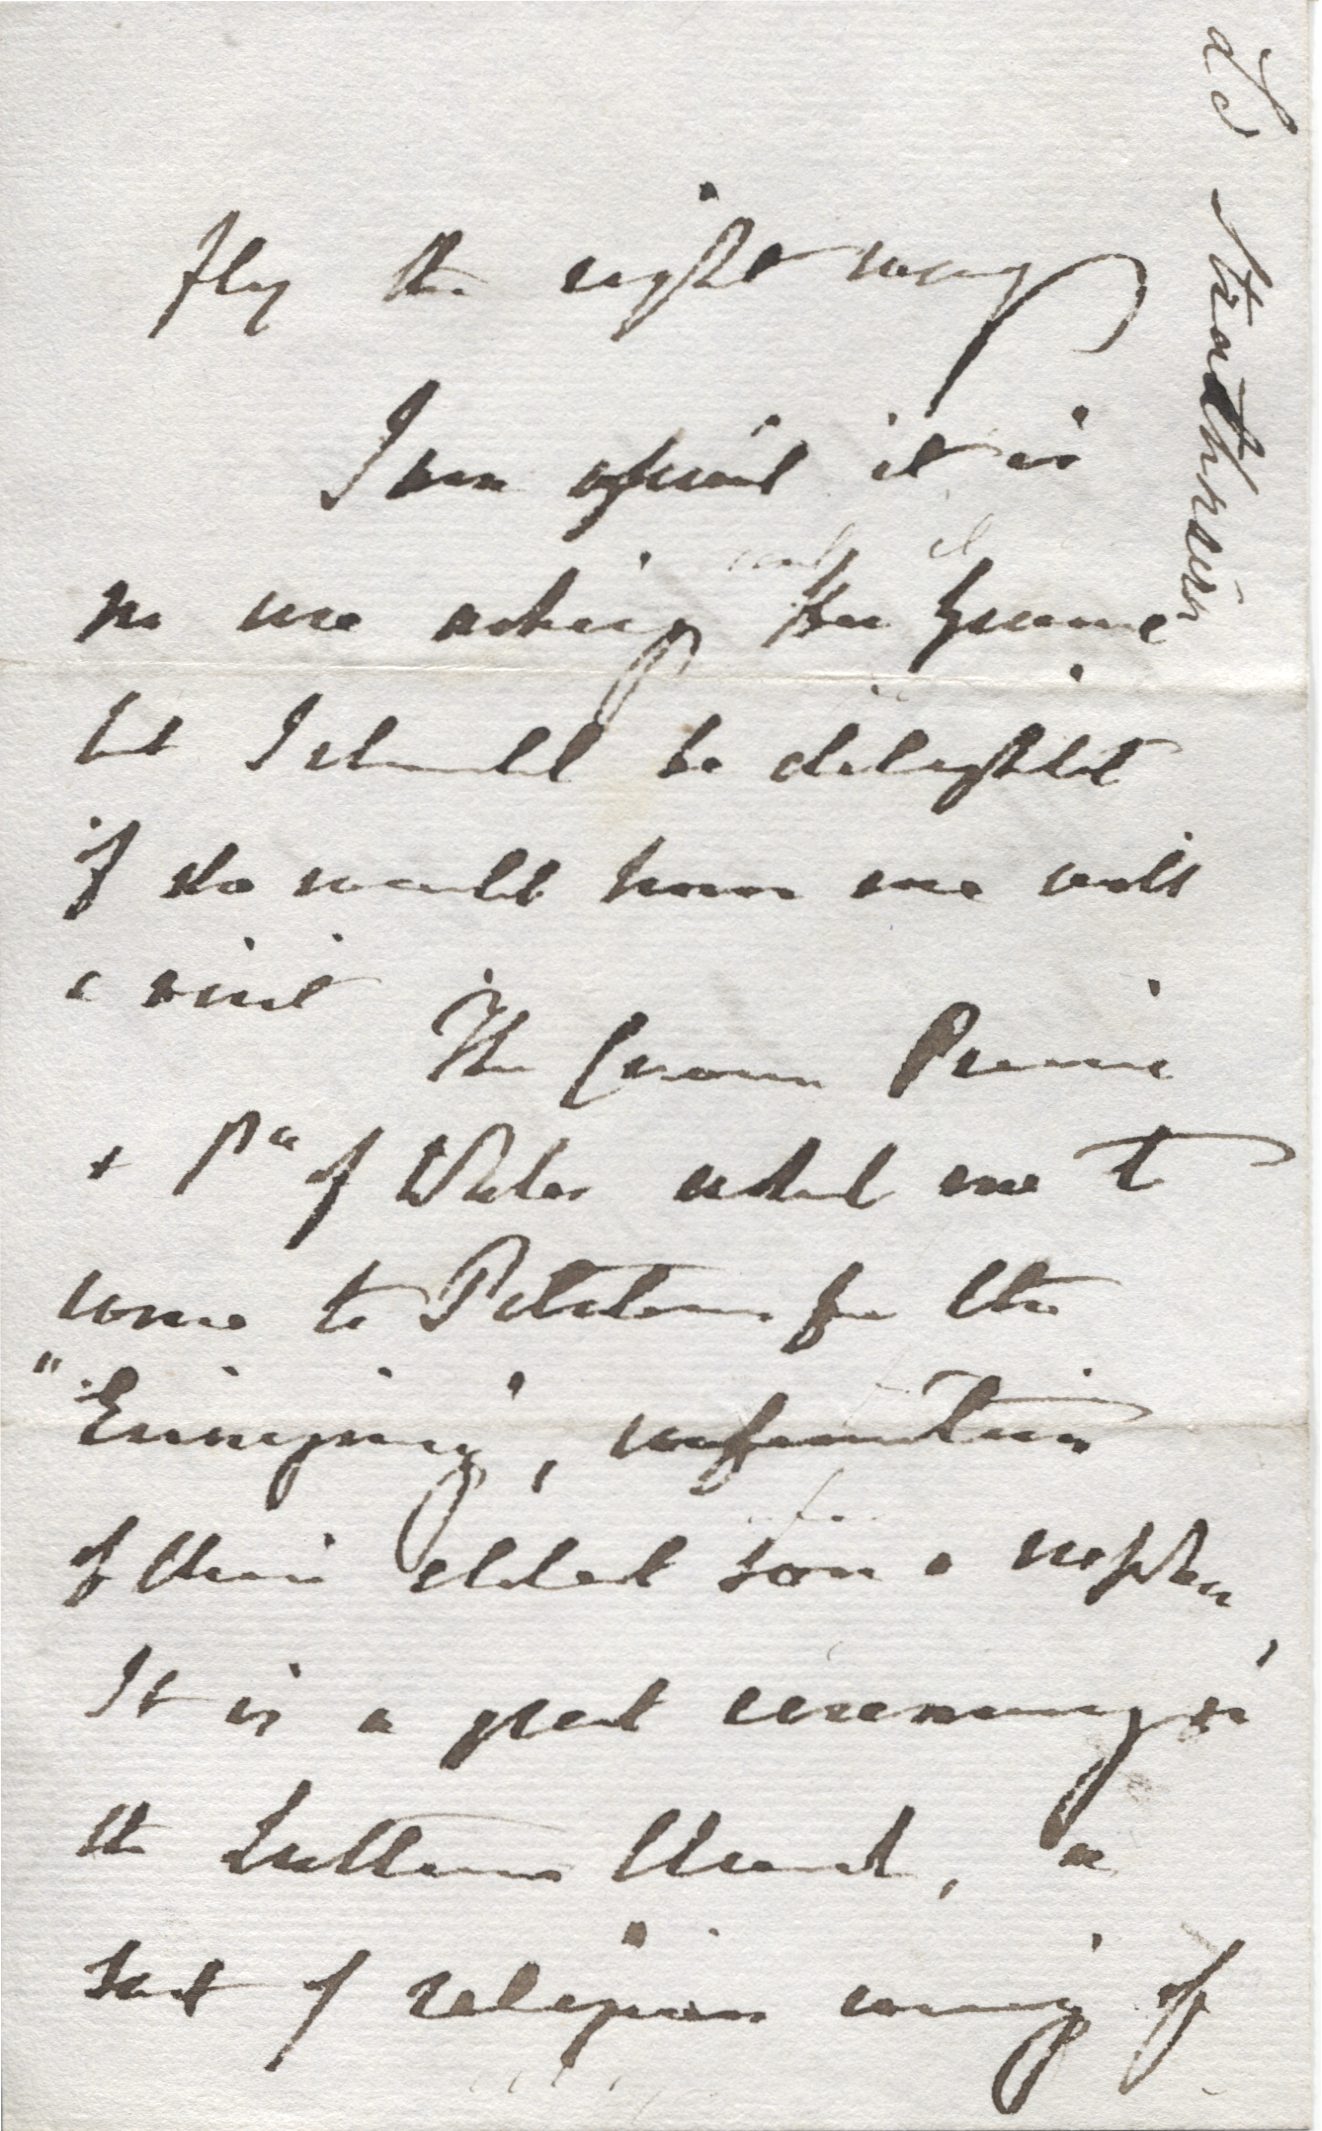 fly the right way
I am afraid it is
no use asking Her Grace
but I should be delighted
if she would honor me with
a visit The Crown Prince
+ Pss of Wales asked me to
come to Potsdam for the
"Einsegnung", confirmation
of their eldest son & nephew,
It is a great ceremony in
the Lutheran Church, a
sort of religious coming of